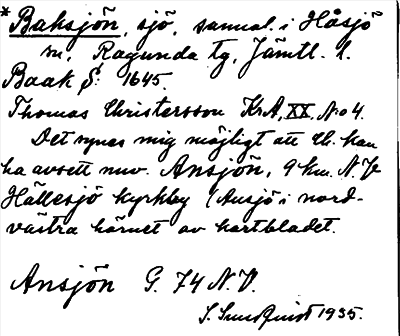 *Baksjön, sjö, samml. i Håsjö
sn, Ragunda tg, Jämtl. l.
Baak S: 1645.
Thomas Christersson KrA, XX, No 4.
Det synes mig möjligt att Ch. kan
ha avsett nuv. Ansjön, 9 km. N.V
Hällesjö kyrkby (Ansjö i nord-
västra hörnet av kartbladet.
Ansjön G. 74 N.V.
S. Sundquist 1935.